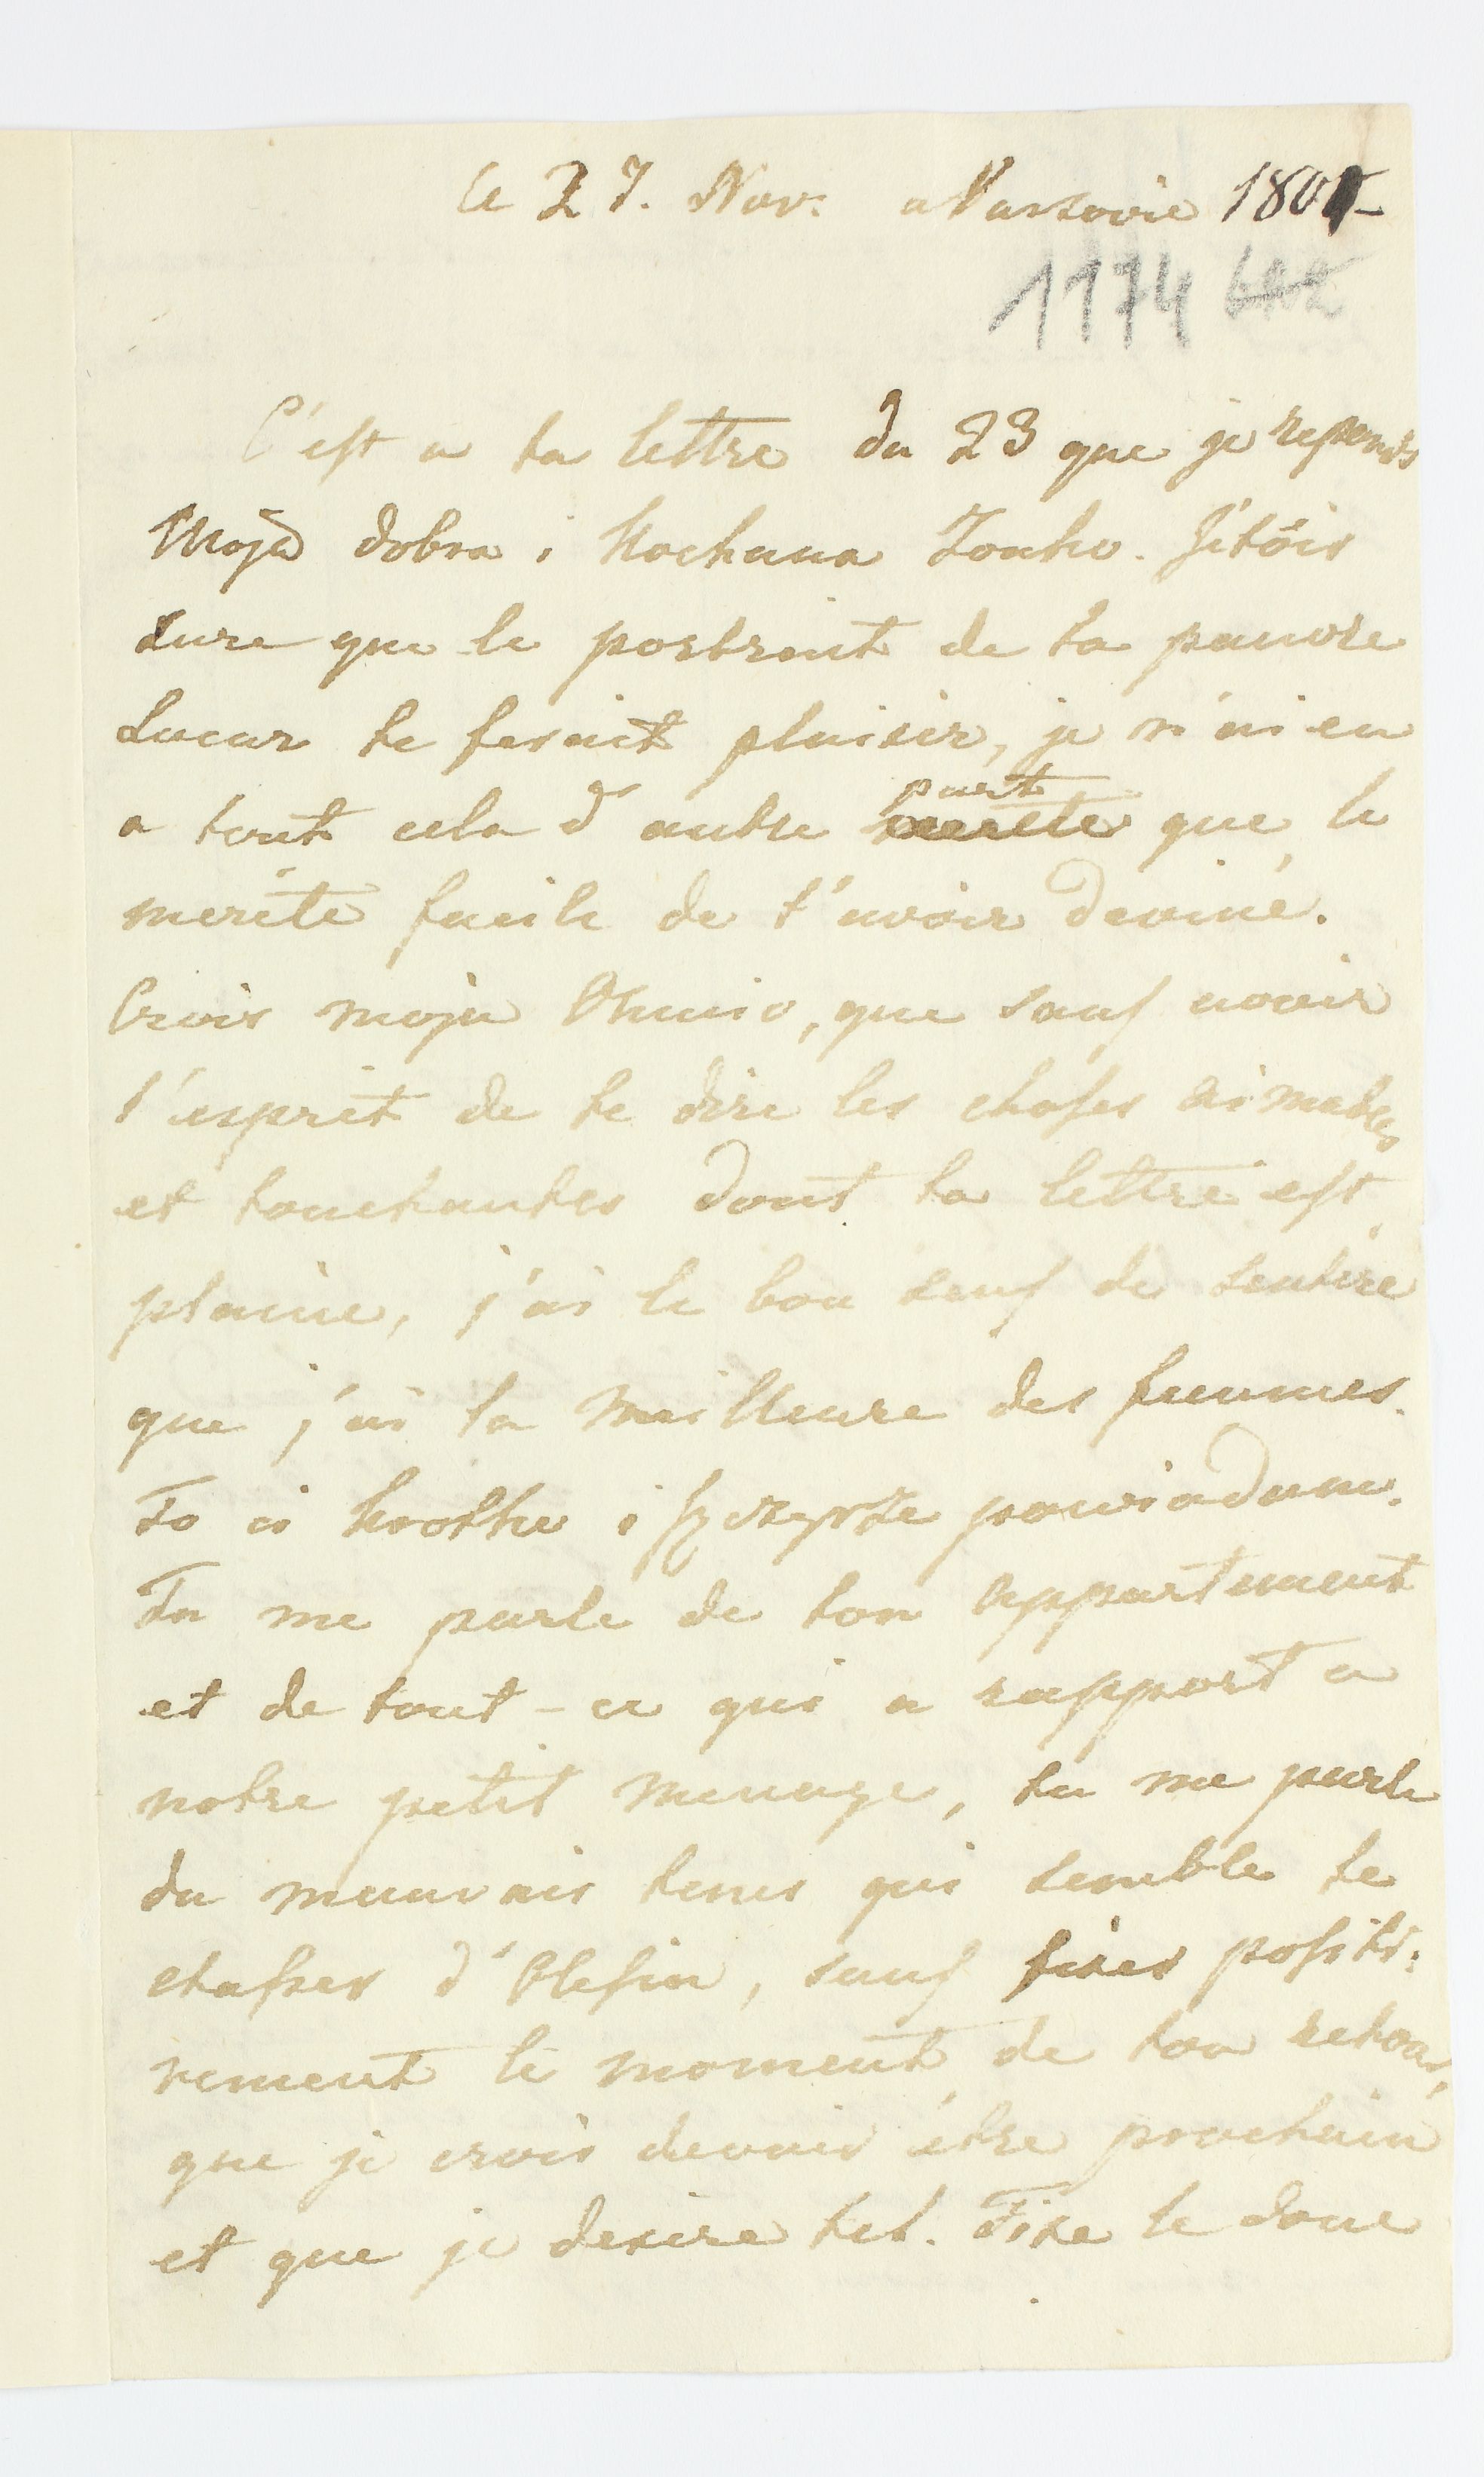 le 27. Nov. a Varsovie 180
1174
C'est a ta lettre du 23 que je reponds
Moja dobra i kochana Zonko. J'étois
sure que le portrait de ta pauvre
Soeur te ferait plaisir, je n'ai eu
a tout cela d'autre part que le
merite facile de t'avoir deviné.
Crois moja Anusio, que sauf avoir
l'esprit de te dire les choses aimables
et touchantes dont ta lettre est
plaine, j'ai le bon sens de sentire
que j'ai la meilleure des femmes.
To ci krotko i szczyrze powiadam.
Tu me parle de ton appartement
et de tout-ce qui a rapport a
notre petit menage, tu me parle
du mauvais tems qui semble te
chasser d'Olesin, sauf fixer positi:
vement le moment de ton retour,
que je crois devoir être prochain
et que je desire tel. Fixe le donc